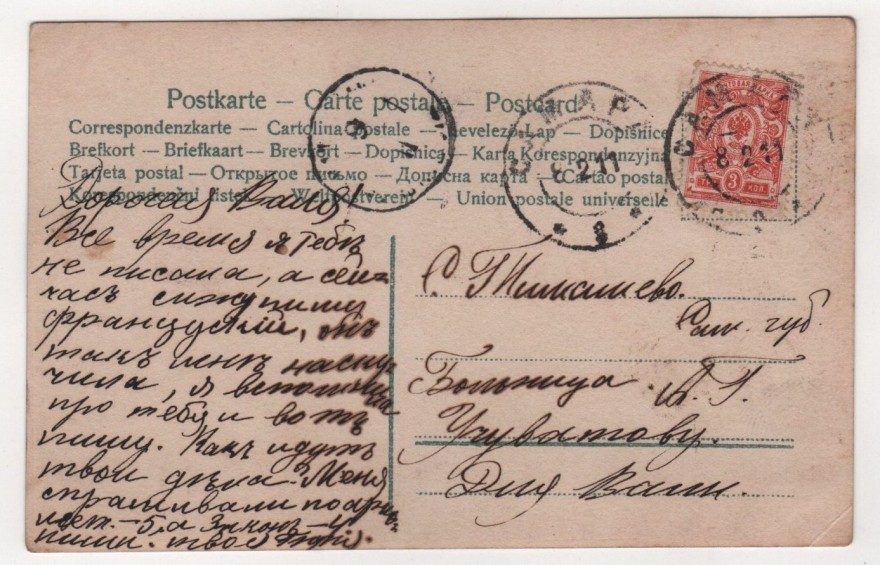 Postkarte — Carte postale — Postcard
Correspondenzkarte — Cartolina Postale — Levelező-Lap — Dopisnice
Brefkort — Briefkaart — Brevkort — Dopisnica — Karta Korespondenzyjna
Tarjeta postal — Открытое письмо — Дописна карта — Cartão postal
Korespondenční listek — Weltpostverein — Union postale universelle
САМАРА
8 2 11
3
САМАРА
8 2 11
3 КОП
Дорогая Ваня!
Все время я тебѣ
не писала, а сей-
часъ сижу пишу
французскій, онъ
такъ мнѣ наску
чила, я вспомнила
про тебя и вотъ
пишу. Какъ идутъ
твои дѣла. Меня
спрашивали по ариѳ-
мет. — 5, а Законъ —
пиши. твоя
С. Тимашево.
Сам. губ.
Больница. А. Г.
Ууватову.
Для Вани.